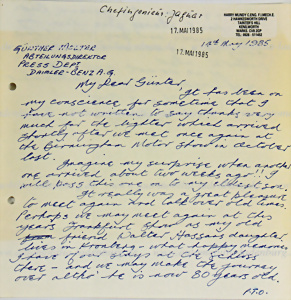 Chefingenieur Jaguar
HARRY MUNDY C.ENG. F.I.MECH.E.
2 HAWKESWORTH DRIVE
KENILWORTH
WARKS. CV8 2GP
17. MAI 1985
17. MAI 1985
14th May 1985
GÜNTHER MOLTER
ABTEILUNGSDIREKTOR
PRESS DEPT
DAIMLER-BENZ A.G.
My Dear Günter,
It has been on
my conscience for sometime that I
have not written to say thanks very
much for the lighter which arrived
shortly after we met once again at
the Birmingham Motor Show in October
last.
Imagine my surprise when another
one arrived about two weeks ago!! I
will pass this one on to my eldest son.
It really was a great pleasure
to meet again and talk over old times.
Perhaps we may meet again at this
years Frankfurt Show as my old
friend Walter Hassan's daughter
lives in Kronberg - what happy memories
I have of our stays at the Schloss
there - and we may make the journey
over altho' he is now 80 years old.
P.T.O.